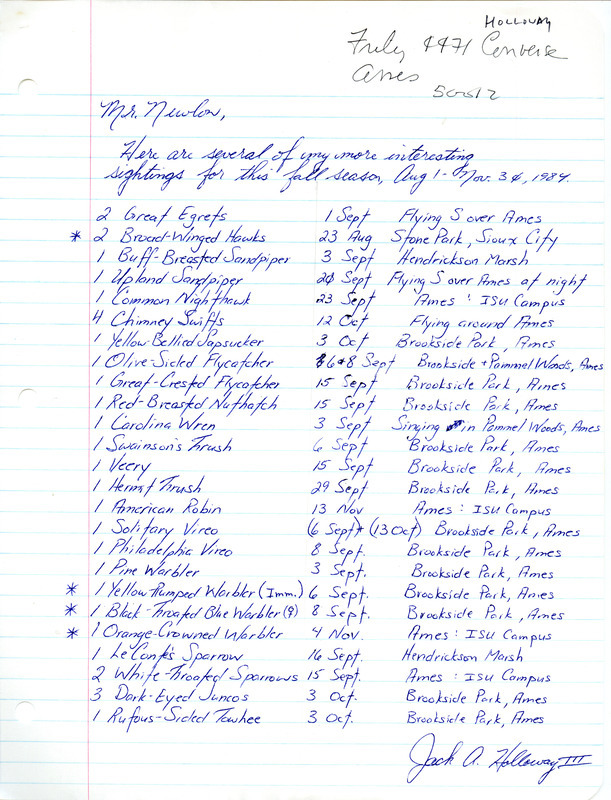 HOLLOWAY
4471 Converse
Ames
50012
Mr. Newlon,
Here are several of my more interesting
sightings for this fall season, Aug 1 - Nov. 30, 1984.
2 Great Egrets 1 Sept Flying S over Ames
* 2 Broad-Winged Hawks 23 Aug Stone Park, Sioux City
1 Buff-Breasted Sandpiper 3 Sept Hendrickson Marsh
1 Upland Sandpiper Sept Flying S over Ames at night
1 Common Nighthawk 23 Sept Ames : ISU Campus
4 Chimney Swifts 12 Oct Flying around Ames
1 Yellow-Bellied Sapsucker 3 Oct Brookside Park, Ames
1 Olive-Sided Flycatcher 6+8 Sept Brookside + Pammel Woods, Ames
1 Great-Crested Flycatcher 15 Sept Brookside Park, Ames
1 Red-Breasted Nuthatch 15 Sept Brookside Park, Ames
1 Carolina Wren 3 Sept Singing in Pammel Woods, Ames
1 Swainson's Thrush 6 Sept Brookside Park, Ames
1 Veery 15 Sept Brookside Park, Ames
1 Hermit Thrush 29 Sept Brookside Park, Ames
1 American Robin 13 Nov Ames : ISU Campus
1 Solitary Vireo (6 Sept)+(13 Oct) Brookside Park, Ames
1 Philadelphia Vireo 8 Sept. Brookside Park, Ames
1 Pine Warbler 3 Sept. Brookside Park, Ames
* 1 Yellow-Rumped Warbler (Imm.) 6 Sept. Brookside Park, Ames
* 1 Black-Throated Blue Warbler (♀) 8 Sept. Brookside Park, Ames
* 1 Orange-Crowned Warbler 4 Nov. Ames : ISU Campus
1 LeConte's Sparrow 16 Sept. Hendrickson Marsh
2 White-Throated Sparrows 15 Sept. Ames : ISU Campus
3 Dark-Eyed Juncos 3 Oct. Brookside Park, Ames
1 Rufous-Sided Towhee 3 Oct. Brookside Park, Ames
Jack A. Holloway III